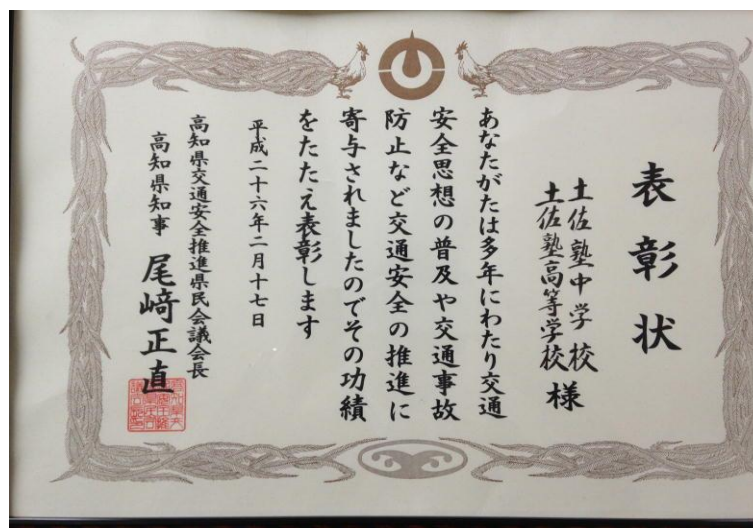 表彰状
土佐塾中学校
土佐塾高等学校
様
あなたがたは多年にわたり交通
安全思想の普及や交通事故
防止など交通安全の推進に
寄与されましたのでその功績
をたたえ表彰します
平成二十六年二月十七日
高知県交通安全推進県民会議会長
高知県知事 尾﨑正直